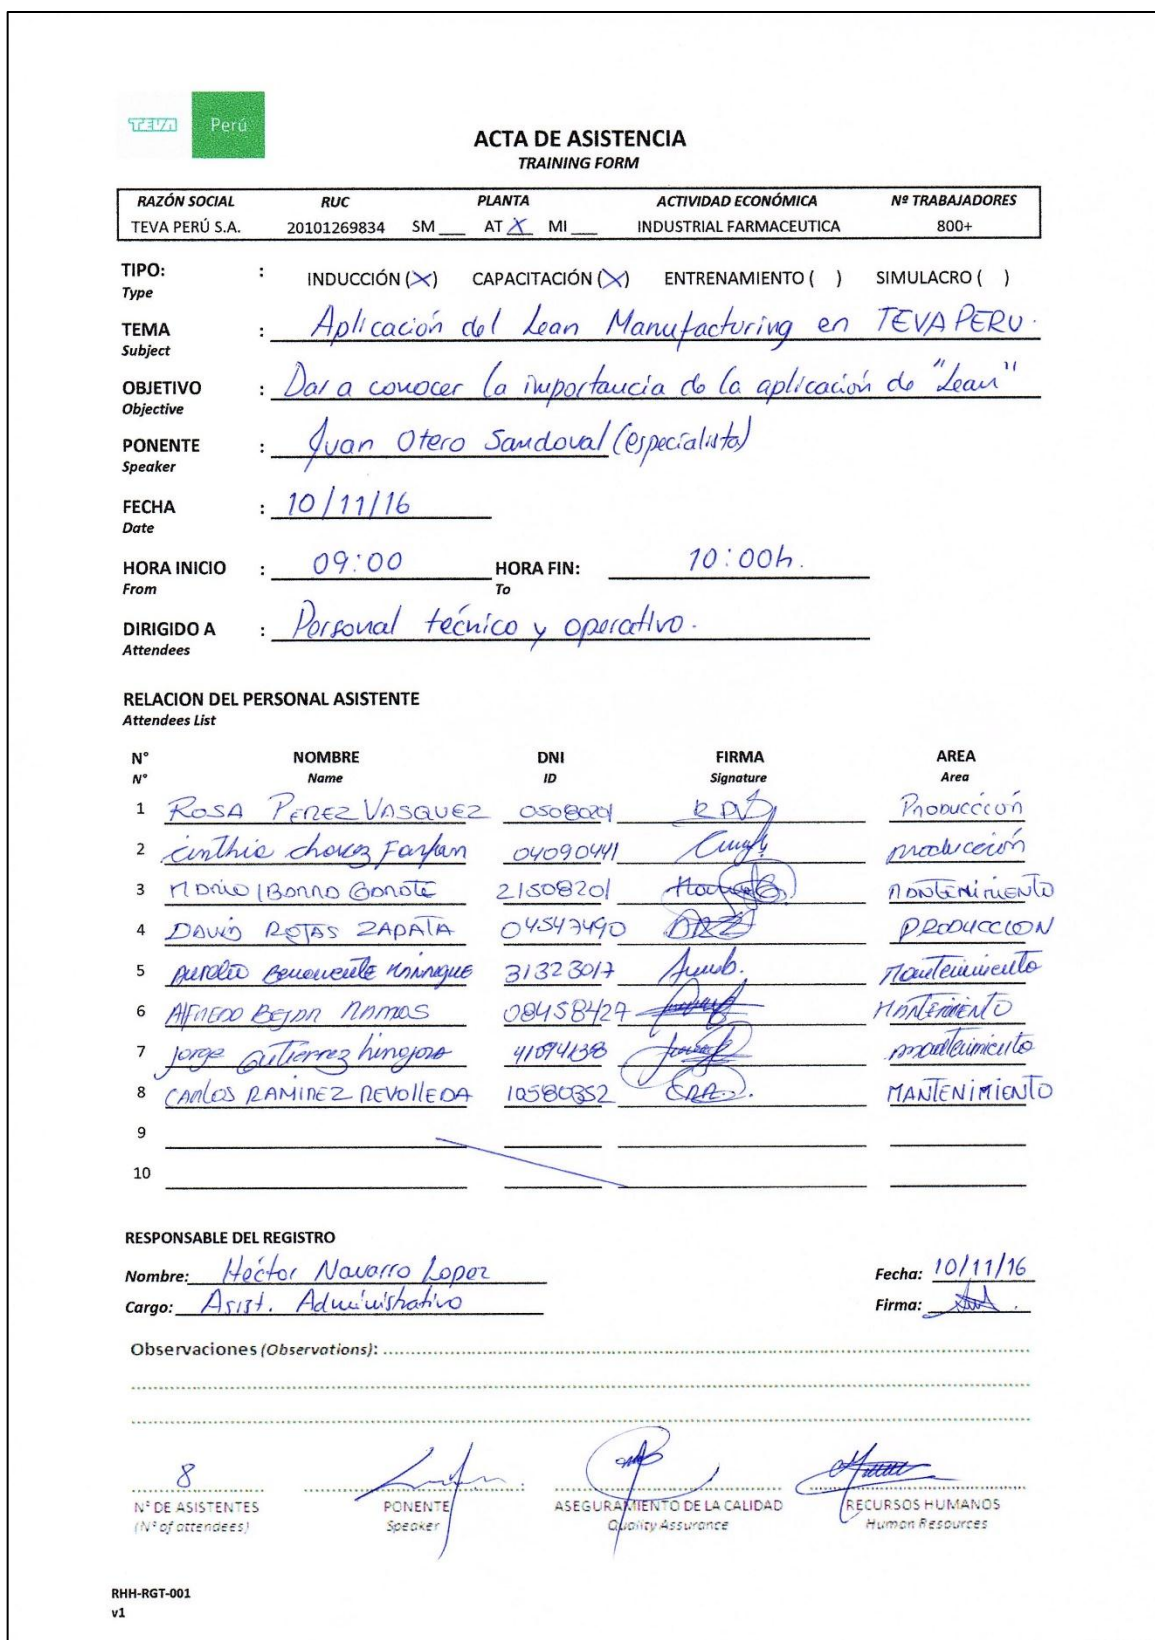 TEVA Perú
ACTA DE ASISTENCIA
TRAINING FORM
RAZÓN SOCIAL RUC PLANTA ACTIVIDAD ECONÓMICA Nº TRABAJADORES
TEVA PERÚ S.A. 20101269834 SM ___ AT X MI ___ INDUSTRIAL FARMACEUTICA 800+
TIPO: : INDUCCIÓN (X) CAPACITACIÓN (X) ENTRENAMIENTO ( ) SIMULACRO ( )
Type
TEMA : Aplicación del Lean Manufacturing en TEVA PERU.
Subject
OBJETIVO : Dar a conocer la importancia de la aplicación de "Lean"
Objective
PONENTE : Juan Otero Sandoval (especialista)
Speaker
FECHA : 10/11/16
Date
HORA INICIO : 09:00 HORA FIN: 10:00h.
From To
DIRIGIDO A : Personal técnico y operativo.
Attendees
RELACION DEL PERSONAL ASISTENTE
Attendees List
N° NOMBRE DNI FIRMA AREA
N° Name ID Signature Area
1 ROSA PEREZ VASQUEZ Producción
2 Cinthia chavez Farfan 04090441 producción
3 21508201 MANTENIMIENTO
4 DAVID ROJAS ZAPATA 04547490 DRZ PRODUCCION
5 Aurelio Benavente Manrique 31323017 Mantenimiento
6 Alfredo BEJAR RAMOS 08458427 MANTENIMIENTO
7 Jorge Gutierrez hinojosa mantenimiento
8 CARLOS RAMIREZ REVOLLEDA 10580352 MANTENIMIENTO
9
10
RESPONSABLE DEL REGISTRO
Nombre: Héctor Navarro Lopez Fecha: 10/11/16
Cargo: Asist. Administrativo Firma:
Observaciones (Observations):
8
N° DE ASISTENTES PONENTE ASEGURAMIENTO DE LA CALIDAD RECURSOS HUMANOS
(N° of attendees) Speaker Quality Assurance Human Resources
RHH-RGT-001
v1